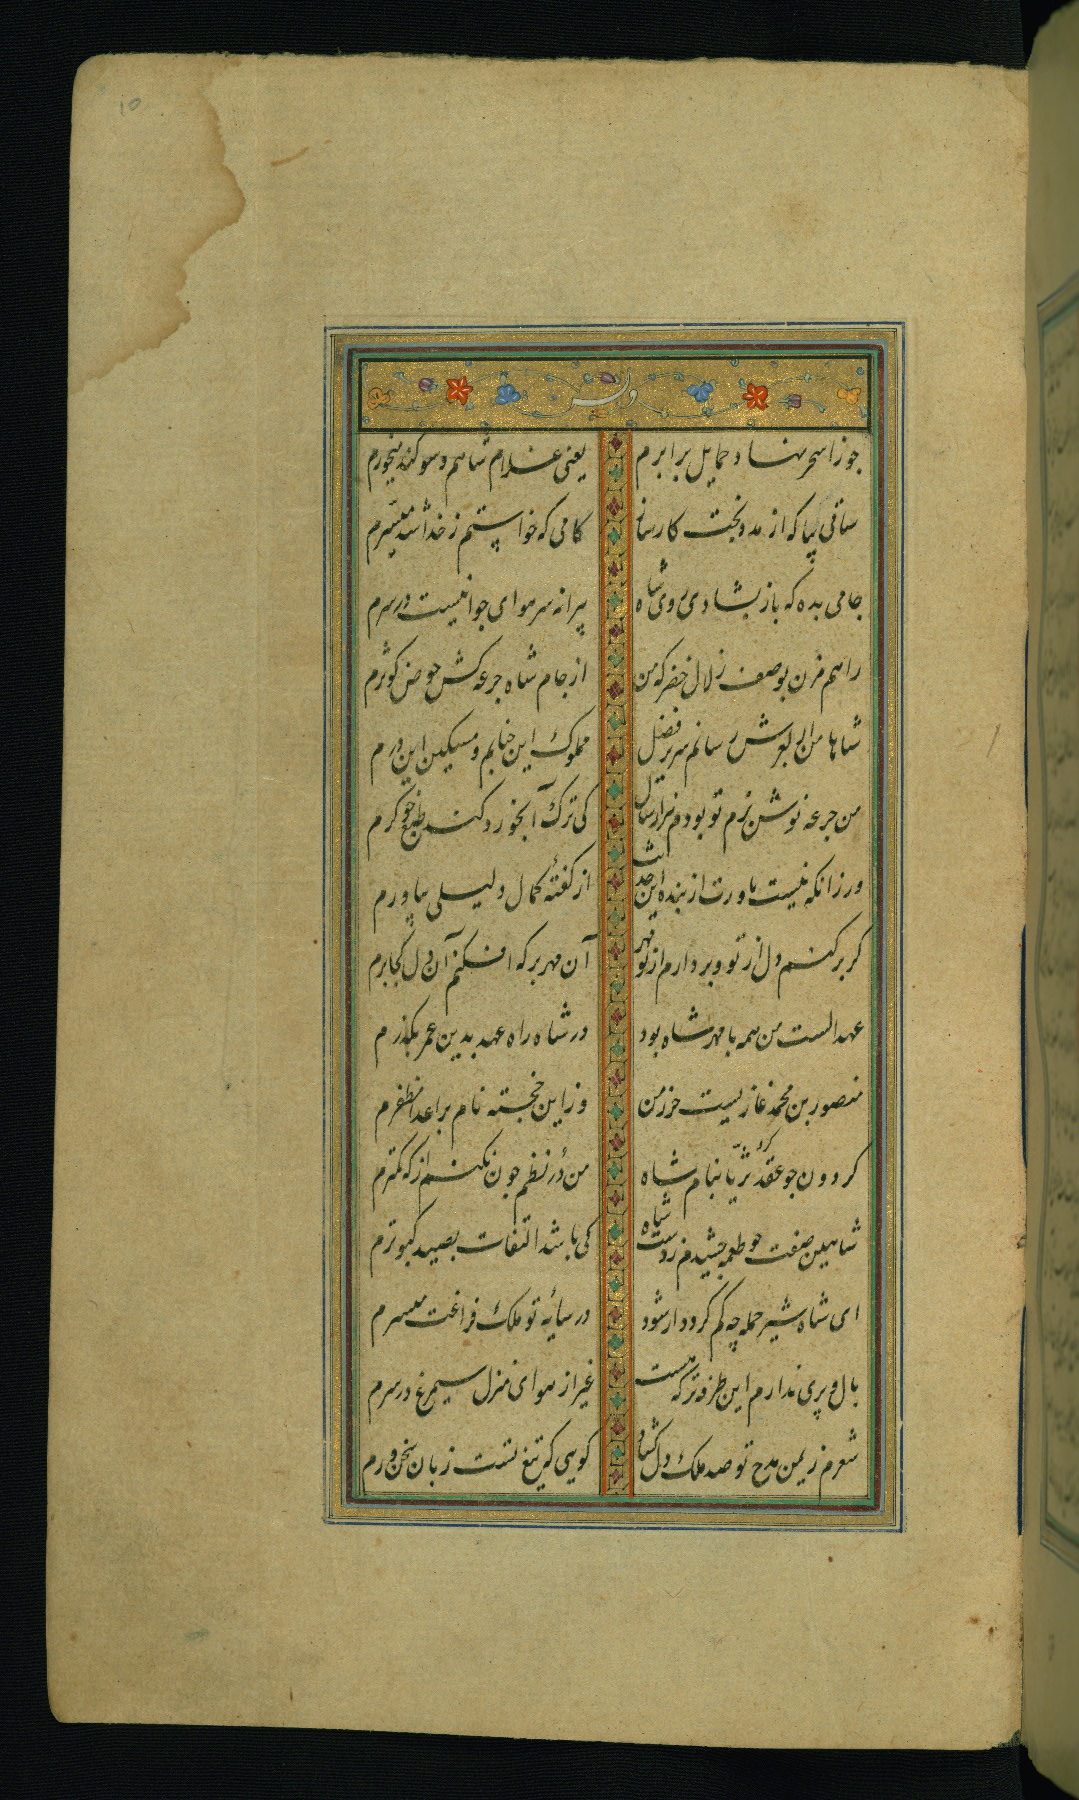 10
وله
جوزا سحر نهاد حمایل برابرم یعنی غلام شاهم و سوکند میخورم
ساقی بیا که از مدد بخت کارساز کامی که خواستم ز خدا شد میسرم
جامی بده که باز بشادی روی شاه پیرانه سر هوای جوانیست در سرم
راهم مزن بوصف زلال خضر که من از جام شاه جرعه کش حوض کوثرم
شاها من ار بعرش رسانم سریر فضل مملوک این جنابم و مسکین این درم
من جرعه نوش بزم تو بودم هزار سال کی ترک آبخورد کند طبع خوکرم
ور زانکه نیست باورت از بنده این حدیث از کفتهٔ کمال دلیلی بیاورم
کر برکنم دل از تو و بردارم از تو مهر آن مهر بر که افکنم آن دل کجا برم
عهد الست من همه با مهر شاه بود در شاه راه عهد بدین عمر بکذرم
منصور بن محمد غازیست حرز من وز این خجسته نام بر اعدا مظفرم
کردون جو عقد ثریا بنام شاه کرد من در نظم جون نکنم از که کمترم
شاهین صفت جو طعمه جشیدم ز دست شاه کی باشد التفات بصید کبوترم
ای شاه شیر حمله چه کم کردد ار شود در سایهٔ تو ملک فراغت میسرم
بال و پری ندارم این طرفه تر که نیست غیر از هوای منزل سیمرغ در سرم
شعرم ز یمن مدح تو صد ملک دل کشاد کویی که تیغ تست زبان سخن ورم